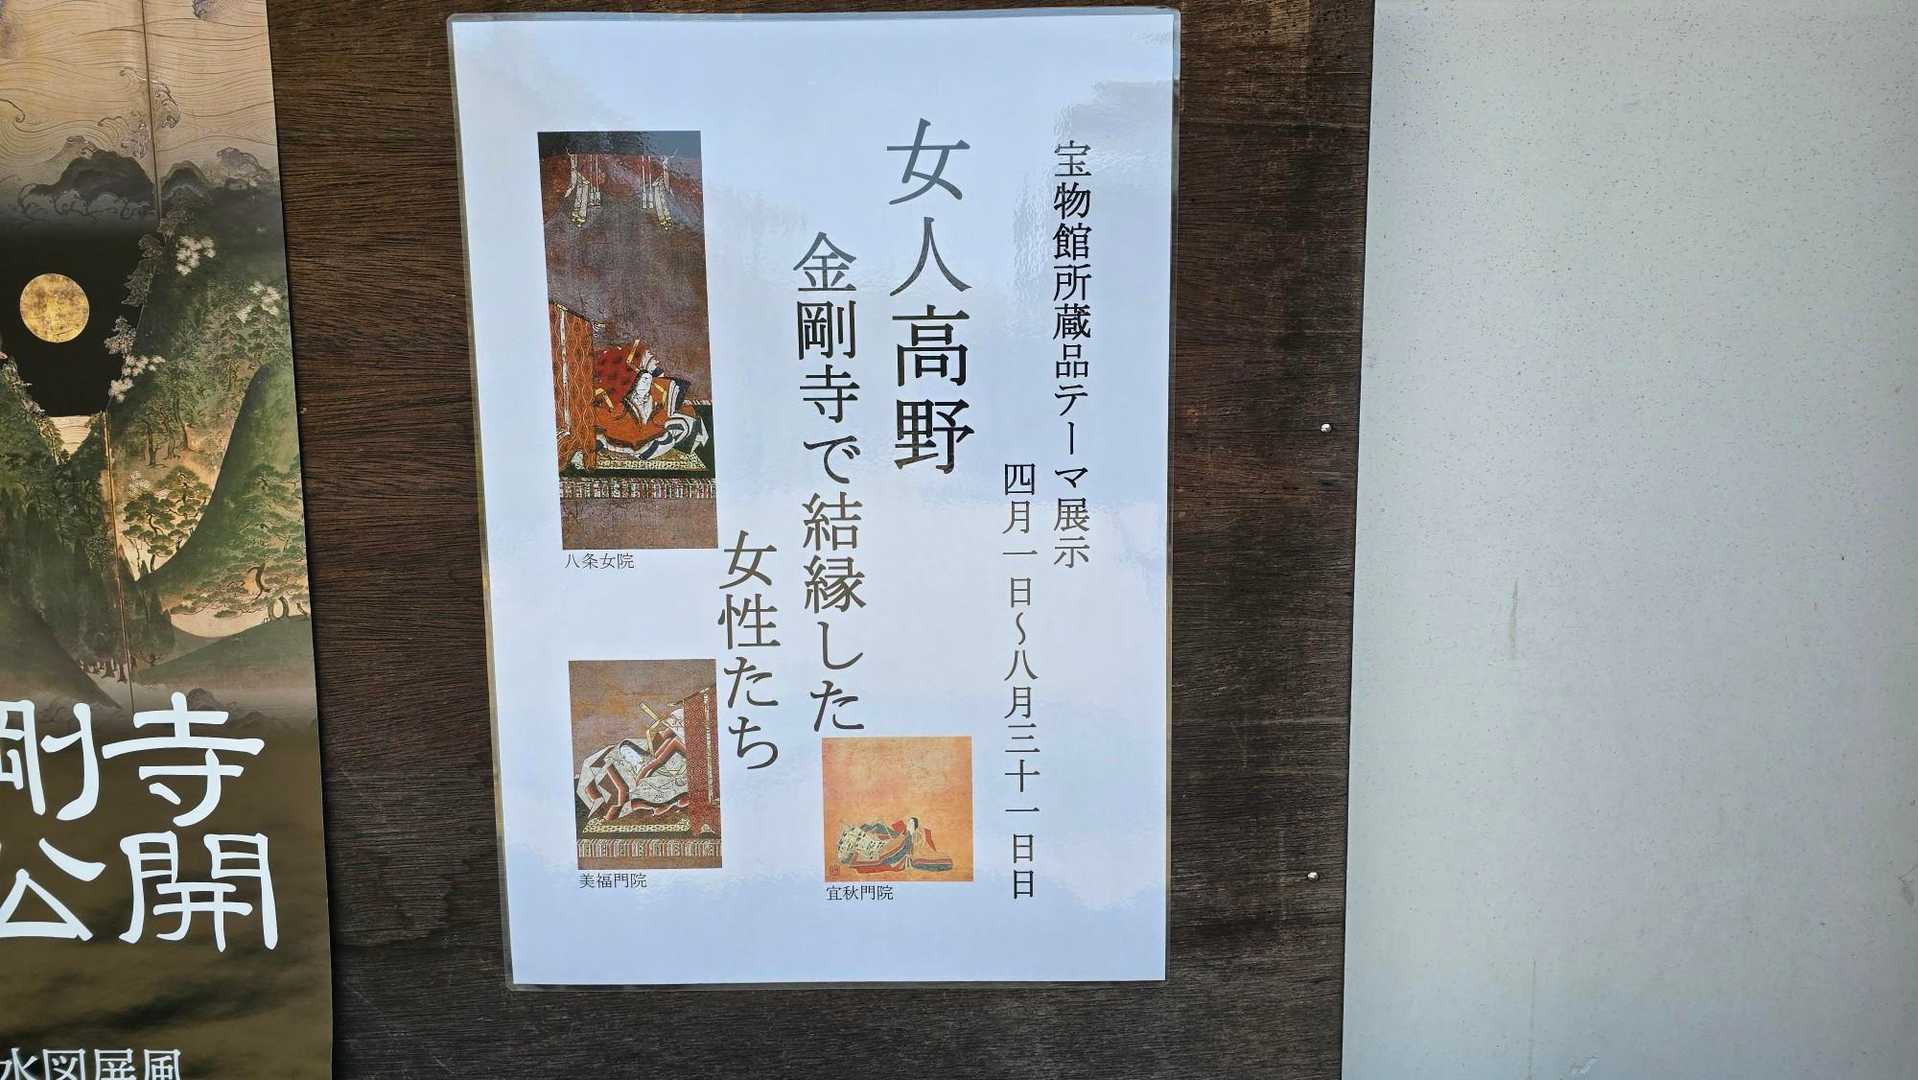 宝物館所蔵品テーマ展示
四月一日～八月三十一日日
女人高野
金剛寺で結縁した
女性たち
八条女院
美福門院
宜秋門院
剛寺
公開
水図屏風